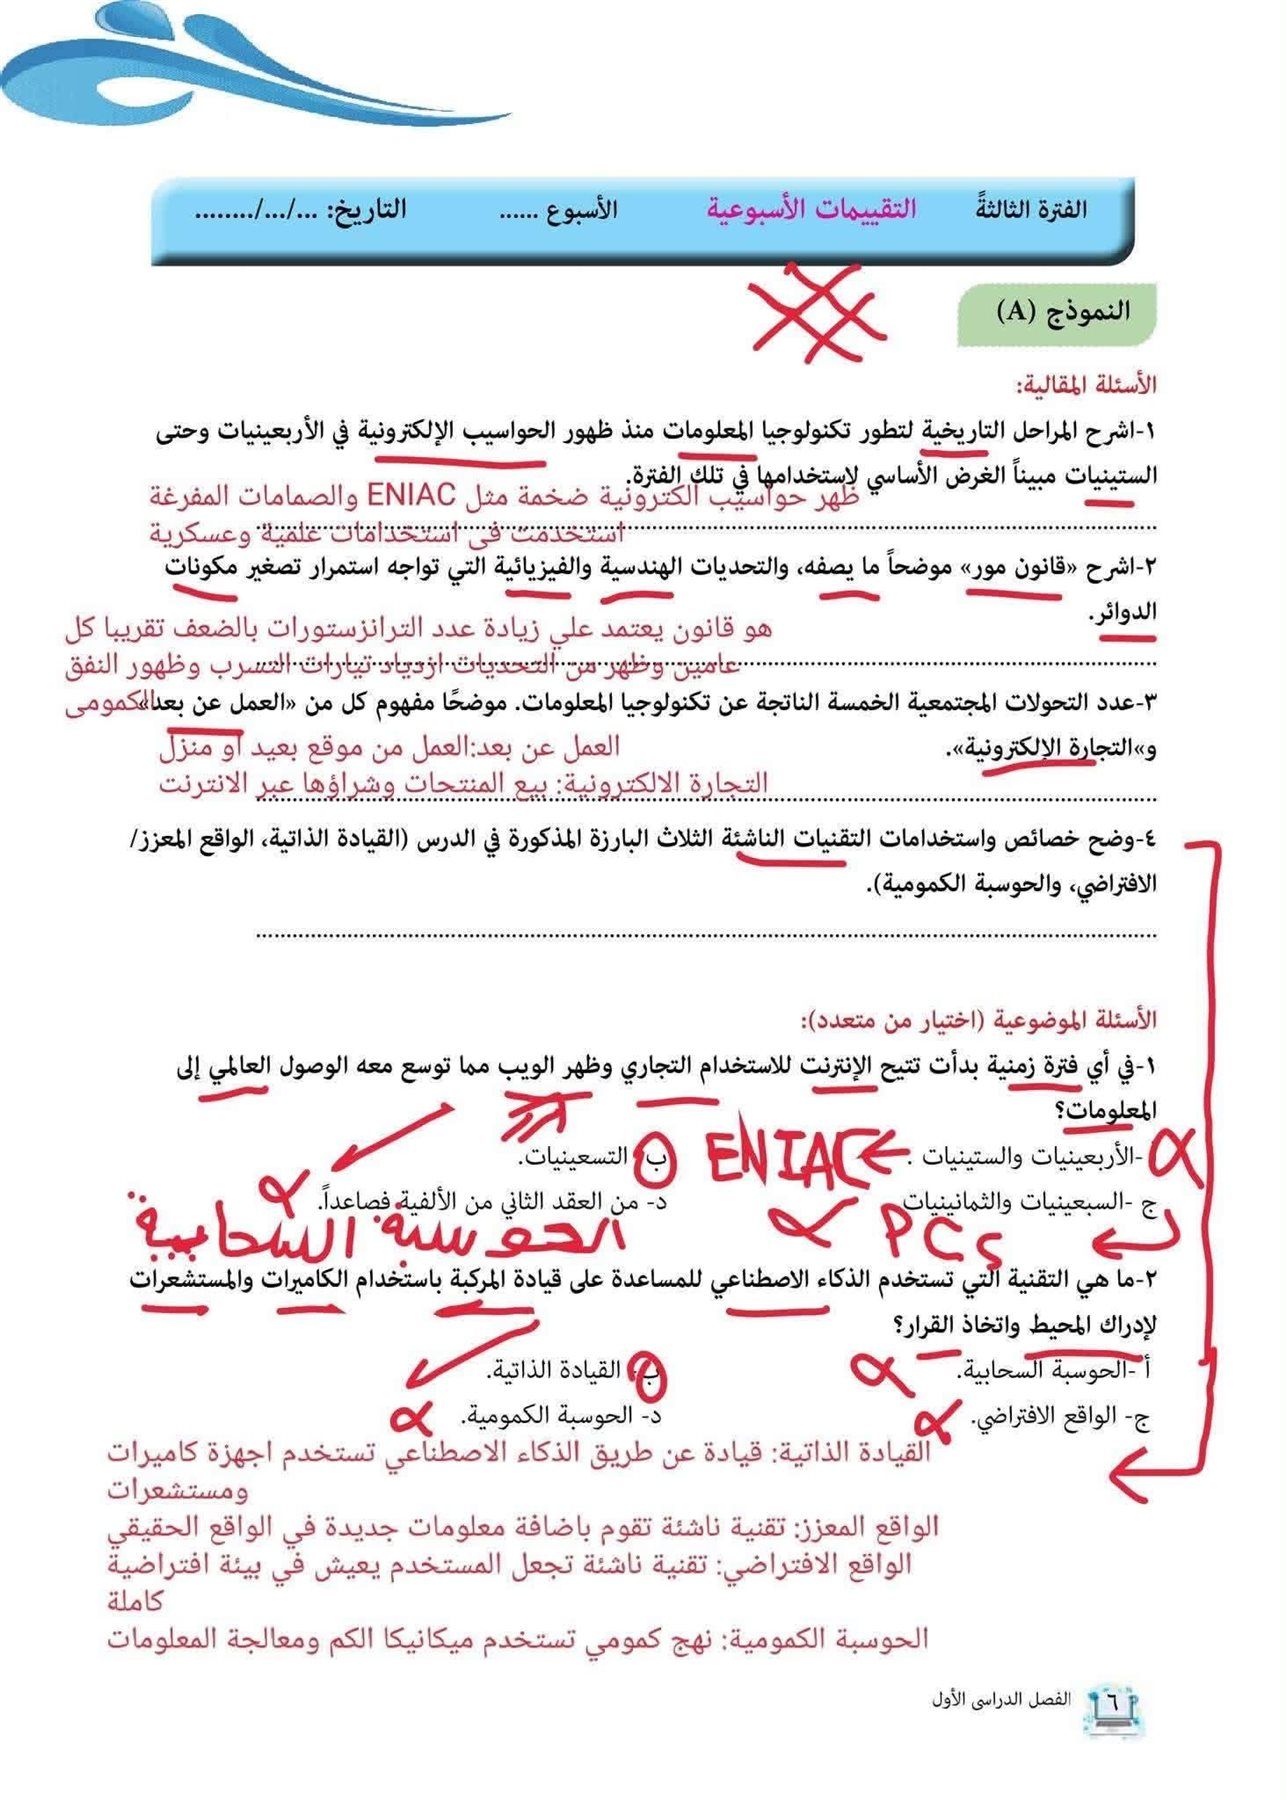 الفترة الثالثةً التقييمات الأسبوعية الأسبوع ...... التاريخ: .../.../........
النموذج (A)
الأسئلة المقالية:
١-اشرح المراحل التاريخية لتطور تكنولوجيا المعلومات منذ ظهور الحواسيب الإلكترونية في الأربعينيات وحتى
الستينيات مبيناً الغرض الأساسي لاستخدامها في تلك الفترة.
ظهر حواسيب الكترونية ضخمة مثل ENIAC والصمامات المفرغة
استخدمت في استخدامات علمية وعسكرية
٢-اشرح «قانون مور» موضحاً ما يصفه، والتحديات الهندسية والفيزيائية التي تواجه استمرار تصغير مكونات
الدوائر.
هو قانون يعتمد علي زيادة عدد الترانزستورات بالضعف تقريبا كل
عامين وظهر من التحديات ازدياد تيارات التسرب وظهور النفق
الكمومى
٣-عدد التحولات المجتمعية الخمسة الناتجة عن تكنولوجيا المعلومات. موضحًا مفهوم كل من «العمل عن بعد»
و»التجارة الإلكترونية».
العمل عن بعد:العمل من موقع بعيد او منزل
التجارة الالكترونية: بيع المنتجات وشراؤها عبر الانترنت
٤-وضح خصائص واستخدامات التقنيات الناشئة الثلاث البارزة المذكورة في الدرس (القيادة الذاتية، الواقع المعزز/
الافتراضي، والحوسبة الكمومية).
الأسئلة الموضوعية (اختيار من متعدد):
١-في أي فترة زمنية بدأت تتيح الإنترنت للاستخدام التجاري وظهر الويب مما توسع معه الوصول العالمي إلى
المعلومات؟
أ-الأربعينيات والستينيات . ENIAC ب- التسعينيات.
ج -السبعينيات والثمانينيات د- من العقد الثاني من الألفية فصاعداً.
PCs الحوسبة السحابية
٢-ما هي التقنية التي تستخدم الذكاء الاصطناعي للمساعدة على قيادة المركبة باستخدام الكاميرات والمستشعرات
لإدراك المحيط واتخاذ القرار؟
أ -الحوسبة السحابية. ب- القيادة الذاتية.
ج- الواقع الافتراضي. د- الحوسبة الكمومية.
القيادة الذاتية: قيادة عن طريق الذكاء الاصطناعي تستخدم اجهزة كاميرات
ومستشعرات
الواقع المعزز: تقنية ناشئة تقوم باضافة معلومات جديدة في الواقع الحقيقي
الواقع الافتراضي: تقنية ناشئة تجعل المستخدم يعيش في بيئة افتراضية
كاملة
الحوسبة الكمومية: نهج كمومي تستخدم ميكانيكا الكم ومعالجة المعلومات
٦ الفصل الدراسى الأول